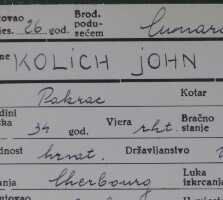 tovao Brod.
jes. 26 god. podu-
sećem Cunard
me KOLICH JOHN
Pakrac Kotar
dini
ska 34 god. Vjera rkt. Bračno
stanje
dnost hrvat. Državljanstvo
anja Cherbourg Luka
iskrcanja